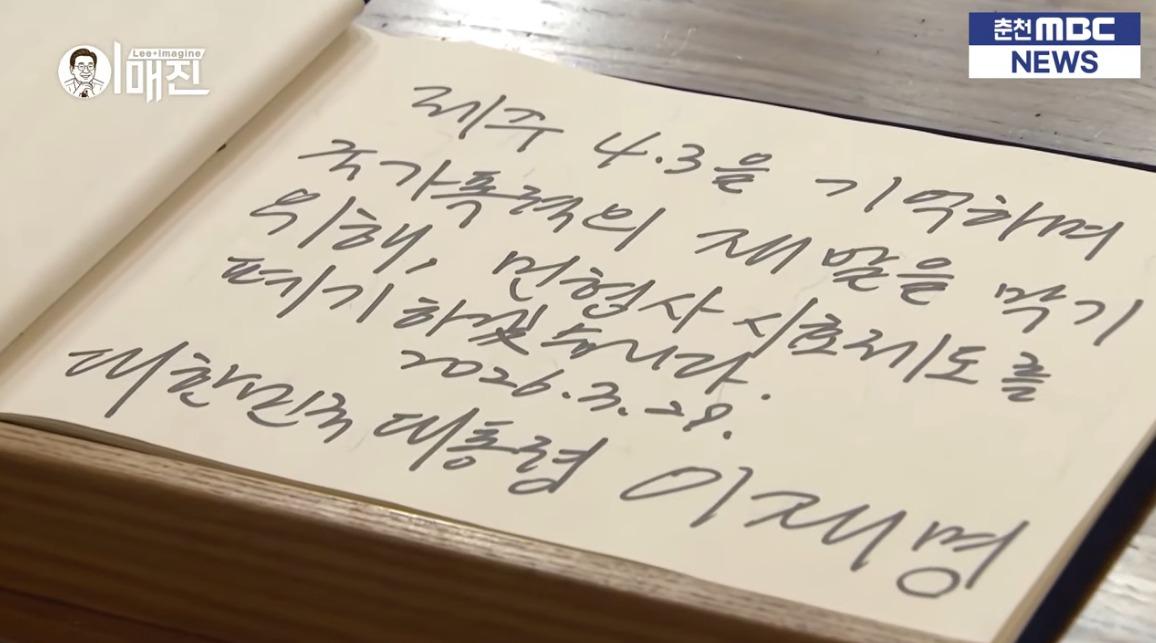 Lee+Imagine
이매진
춘천MBC
NEWS
제주 4.3을 기억하며
국가폭력의 재발을 막기
위해, 민형사 시효제도를
폐기하겠습니다.
2026.3.28.
대한민국 대통령 이재명